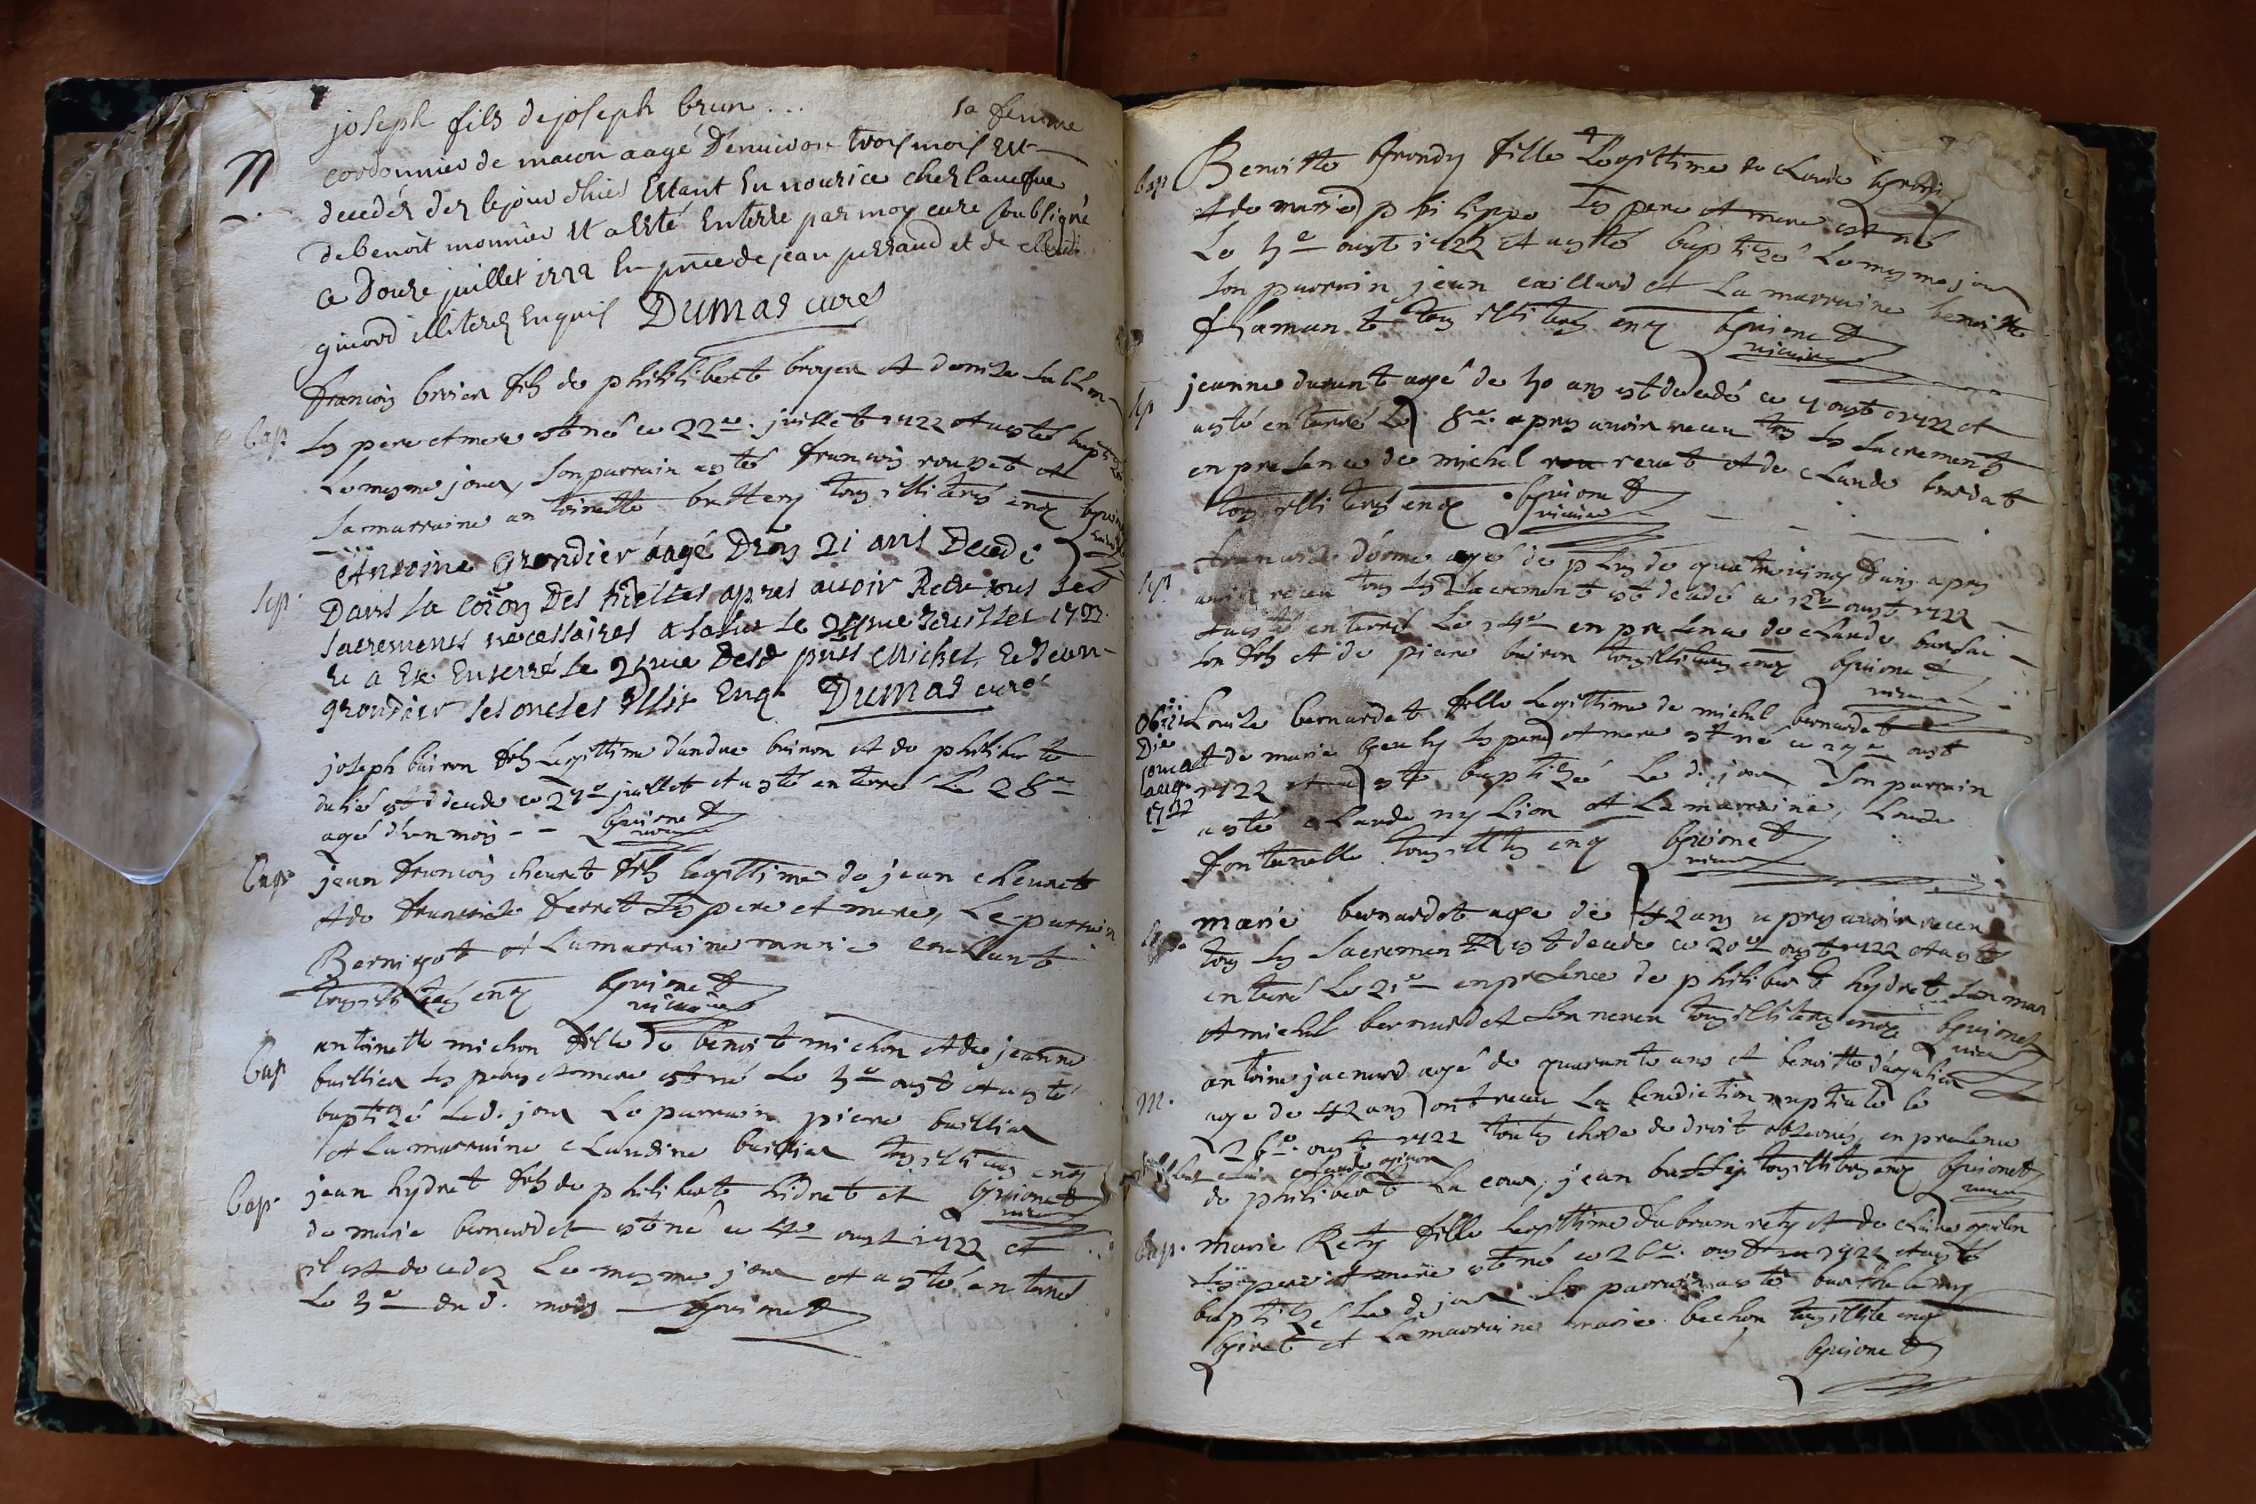 joseph fils de joseph brun ... sa femme
cordonnier de macon aagé d'enuiron trois mois est
decedéz dez le jour d'hier Estant En nourice chez la uefue
de benoit monnier et a esté Enterré par moy curé soubsigné
ce douze juillet 1722 En pnce de jean perraud et de claudi
guiard illiterez Enquis Dumas curé
francois brier fils de philibert broyer et
Bap. Les pere et mere est né ce 22e. juillet 1722 et a esté baptizé
Le mesme jour, Son parrain a esté francois roupet et
La marraine antoinette buttery tous illiterés enq
Antoine Grandier áagé Denv 21 ans Decedé
Sep. Dans la Coion Des apres auoir Receu tous Les
sacrements necessaires a salut Le 24me Jeuillet 1722
Et a Ete Enterré Le 25me Desd pnts Michel et Jean
grandier ses oncles Illit Enq. Dumas curé
joseph buiron fils Legittime d'andre buiron et de philiberte
est decede ce 27e juillet et a esté enterré Le 28e
agé d'un mois - - Guionet
vicaire
Bap. jean francois cheuret fils legittime de jean cheuret
et de francoise ferret Ses pere et mere, Le parrain
Bernigot et La marraine
tous illiterés enq Guionet
vicaire
Bap antoinette michon fille de benoist michon et de jeanne
buillier Les pere et mere est né Le 3e oust et a esté
baptizé Led. jour Le parrain piere buillier
et La marraine Claudine buillier tous illiterés enq
Bap. jean hydret fils de philibert hidret et Guionet
de marie bernardet est né ce 4e oust 1722 et
il est decedez Le mesme jour et a esté enterré
Le 5e du d. mois Guionet
Bap Benoitte Grondy fille Legittime de Claude Grondy
et de marie philippe Ses pere et mere est né
Le 5e oust 1722 et a esté baptizé Le mesme jour
Son parrain jean caillard et La marraine benoitte
flamante tous illiterés enq Guionet
vicaire
Sep jeanne durant agé de 50 ans est decedé ce 7 oust 1722 et
a esté enterré Le 8e. apres auoir receu tous Les Sacrements
en presence de michel reuet et de Claude bourdat
tous illiterés enq Guionet
vicaire
Sep. francoise agé de plus de quatreuing d'ans apres
auoir receu tous Les Sacrement est decedé ce 12e oust 1722
et a esté enterré Le 14e en presence de Claude
Son fils et de piere buiron tous illiterés enq Guionet
Obiit
Die
aug.
1722
Louise bernardet fille Legittime de michel bernardet
et de marie Ses pere et mere est né ce oust
1722 et a esté baptizé Le d. jour Son parrain
a esté Claude nylion et La marraine, Louise
fontenelle tous illites enq Guionet
marie bernardet age de 42 ans apres auoir receu
tous Les Sacrement est decede ce 20e oust 1722 et a esté
enterré Le 21e en presence de philibert hydret Son mari
et michel bernardet Son neueu tous illiterés enq Guionet
M. antoine jacnard agé de quarante ans et benoitte
age de 42 ans ont receu La benediction nuptiale le
26e. oust 1722 toutes chose de droit obserués, en presence
de philibert La cour, jean tous illiterés enq Guionet
Bap. marie Rety fille legittime d'abram rety et de
Les pere et mere est né ce 26e. oust 1722 et a esté
baptizé Le d. jour Le parrain a esté barthelemy
Giret et La marraine marie bechon tous illite enq
Guionet